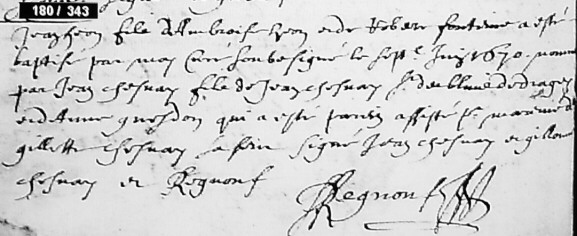 180 / 343
Jean heon filz d'Ambroise heon et de Robere fontaine a esté
baptisé par moy Curé soubesigné le sept.e Juin 1670. nommé
par Jean Chesnay filz de Jean Chesnay Sr.
et d'Anne guesdon qui a esté parein assisté pr. mareine de
gillette Chesnay à sein signé Jean Chesnay et gillone
Chesnay et Regnouf
Regnouf